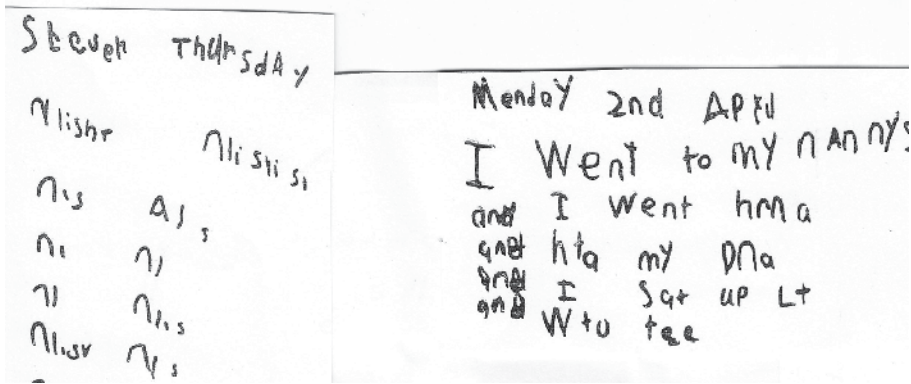 Steven Thursday
nlishr nlistisi
nis Ais
ni ni
ni nlis
nlisr nis
Menday 2nd April
I Went to my nAnnys
and I went hma
and hta my Dna
and I Sat up Lt
and W to tee